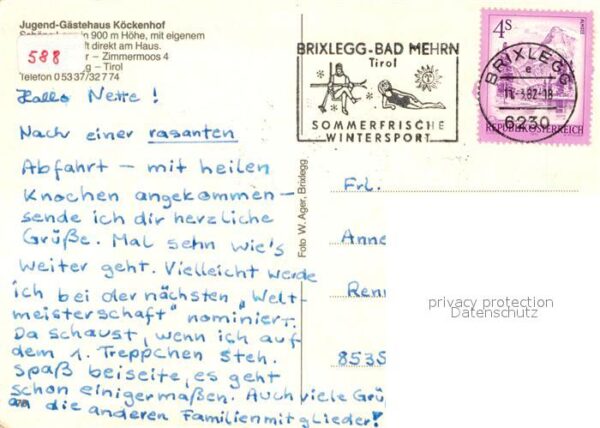 Jugend-Gästehaus Köckenhof
in 900 m Höhe, mit eigenem
direkt am Haus.
Zimmermoos 4
Tirol
Telefon 0 53 37/32 7 74
588
Hallo Nette!
Nach einer rasanten
Abfahrt – mit heilen
Knochen angekommen –
sende ich dir herzliche
Grüße. Mal sehn wie's
weiter geht. Vielleicht werde
ich bei der nächsten „Welt-
meisterschaft" nominiert.
Da schaust, wenn ich auf
dem 1. Treppchen steh.
Spaß beiseite, es geht
schon einigermaßen. Auch viele Grü
an die anderen Familienmitglieder!
Foto W. Ager, Brixlegg
BRIXLEGG-BAD MEHRN
Tirol
SOMMERFRISCHE
WINTERSPORT
4S
BRIXLEGG
e
-3.82-18
6230
REPUBLIK ÖSTERREICH
Frl.
Anne
Ren
8535
privacy protection
Datenschutz